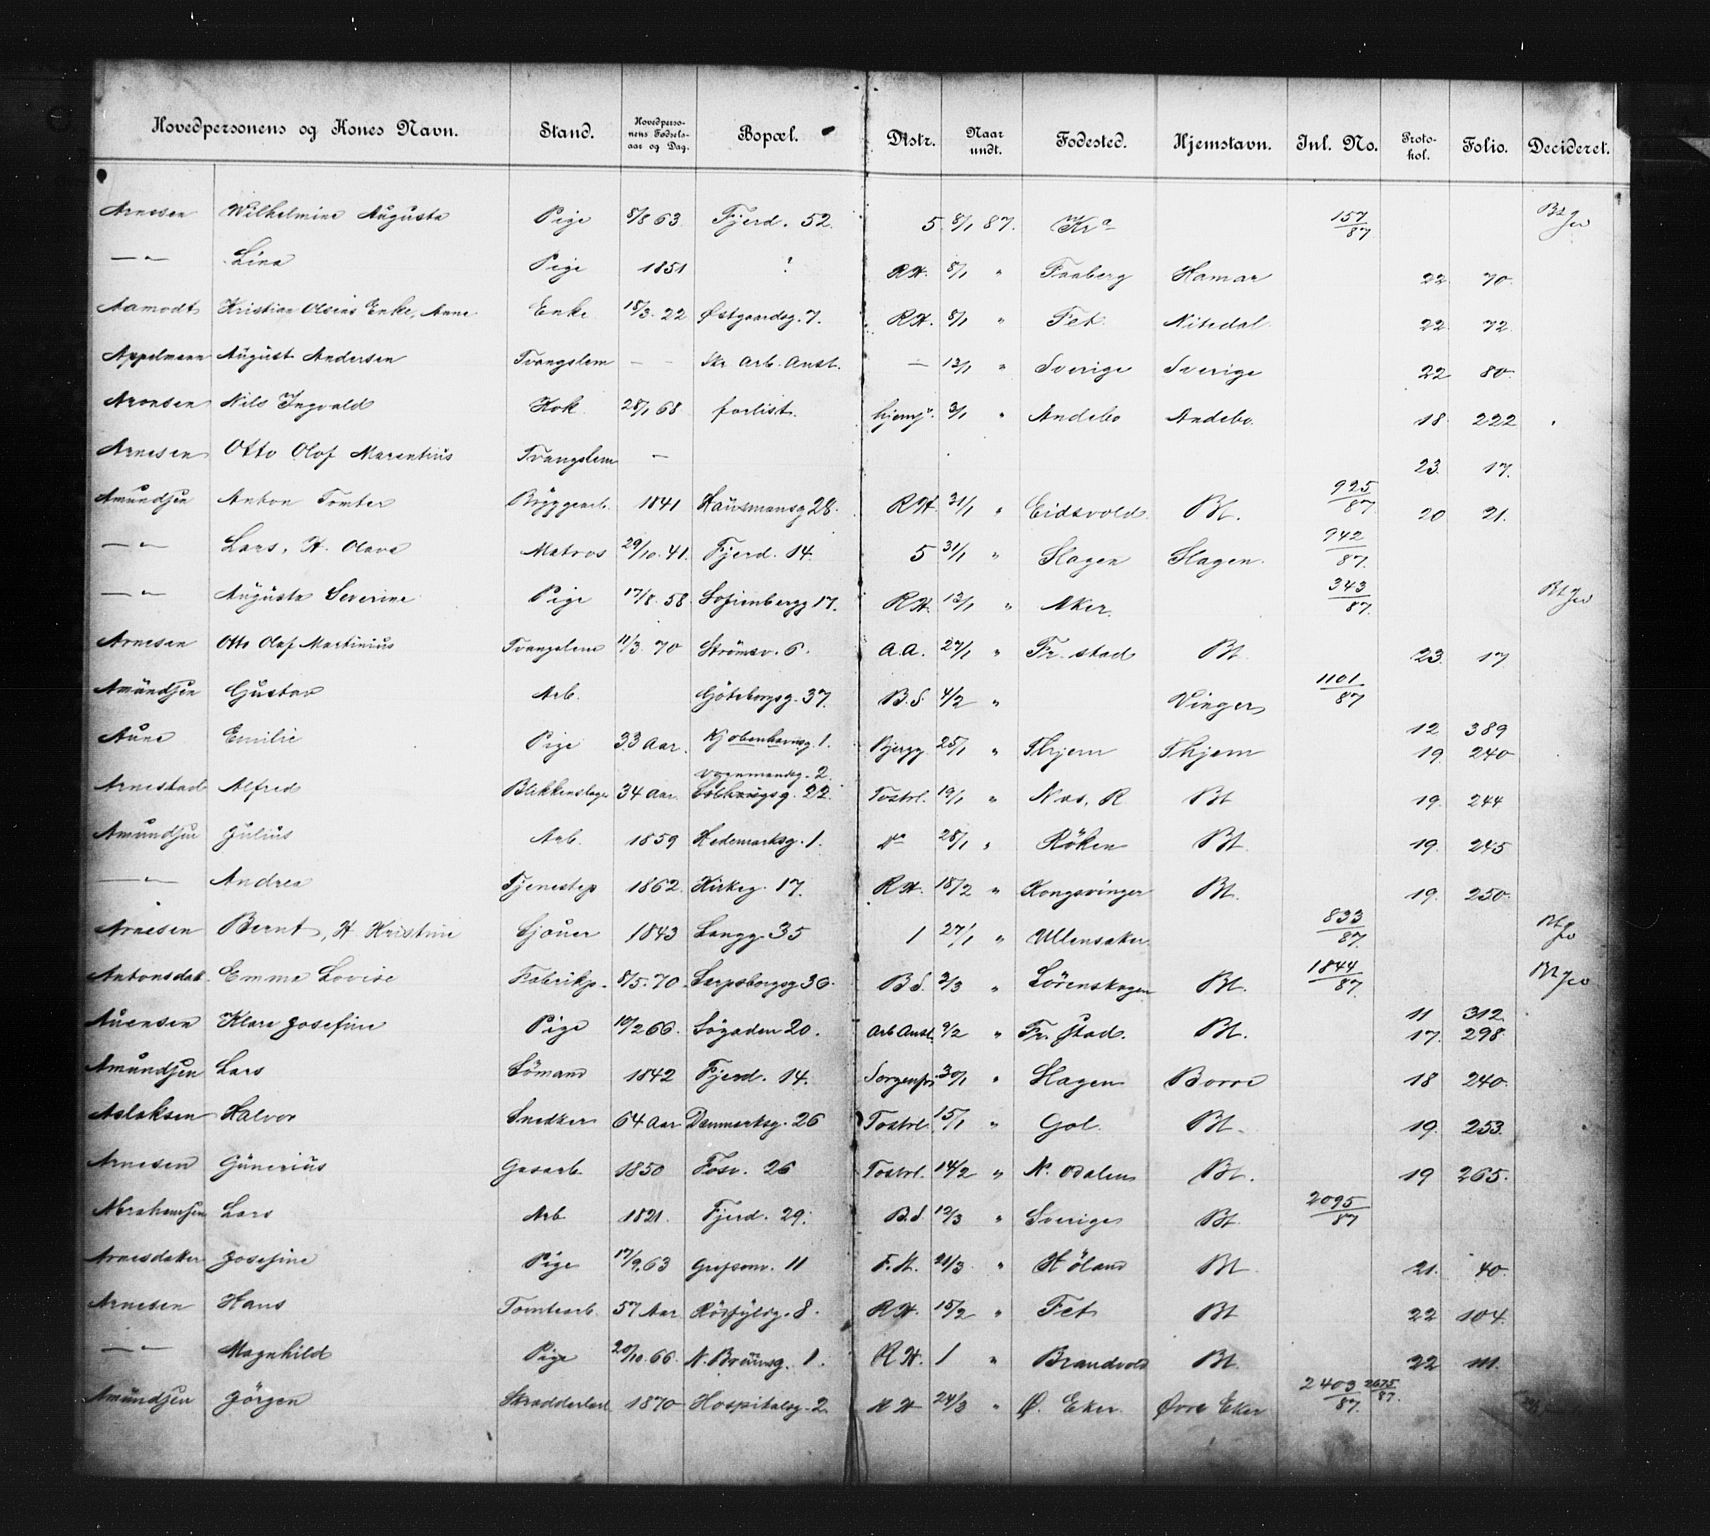 Hovedpersonens og Kones Navn. Stand. Hovedpersonens Fødselsaar og Dag. Bopæl. Distr. Naar undt. Fødested. Hjemstavn. Inl. No. Protokol. Folio. Decideret.
Arnesen Wilhelmine Augusta Pige 8/8 63 Fjerd. 52. 5. 8/1 87. Kra 157/87
—〃— Lina Pige 1851 ? R.H. 8/1 〃 Faaberg Hamar 22 70.
Aamodt Kristian Olsens Enke, Anne Enke 18/3. 22 Østgaardsg. 7. R.H. 8/1 〃 Fet Nitedal 22 72
Appelmann August Andersen Tvangslem — — Kr Arb. Anst. — 12/1 〃 Sverige Sverige 22 80.
Aronsen Nils Ingvald Kok 28/1 68 forlist. 3/1 〃 Andebo Andebo. 18 222
Arnesen Otto Olof Marentius Tvangslem — 23. 17.
Amundsen Anton Tomter Bryggearb. 1841 Hausmansg 28. R.H. 31/1 〃 Eidsvold Bt. 925/87 20 21.
—〃— Lars, H. Olava Matros 29/10. 41. Fjerd. 14. 5 31/1 〃 Slagen Slagen. 942/87.
—〃— Augusta Severine Pige 17/8. 58. Sofienbergg 17. R.H. 12/1 〃 Aker. 343/87.
Arnesen Otto Olaf Martinius Tvangslem 11/3. 70 Strömsv. 6. A.A. 27/1 〃 Fr. stad Bt. 23. 17
Amundsen Gustav Arb. Göteborgsg. 37. B.S. 4/2 〃 Vinger 1101/87
Aune Emilie Pige 33 Aar. Kjøbenhavnsg. 1. Bjergg 25/1 〃 Thjem Thjem 12 389
19. 240
Vaanmandsg. 2.
Arnestad Alfred Blikkenslager 34 Aar. 22. Tostrl. 19/1 〃 Nes, R Bt 19. 244
Amundsen Julius Arb. 1859 Hedemarksg. 1. Do 28/1 〃 Röken Bt. 19. 245
—〃— Andrea Tjenestep 1862. Kirkeg. 17. R.H. 18/2 〃 Kongsvinger Bt. 19. 250.
Arnesen Bernt, H. Kristine Sjouer 1843 Langg. 35 1 27/1 〃 Ullensaker 833/87.
Antonsdat. Emma Lovise Fabrikp. 8/5. 70 Sarpsborgsg 30. B.S. 2/3 〃 Lörenskogen Bt. 1844/87.
Auensen Klara Josefine Pige 10/2 66. Søgaden 20. Arb Anst. 9/2 〃 Fr. stad. Bt. 11 312
17. 298
Amundsen Lars Sömand 1842 Fjerd. 14. Sorgenfri 30/1 〃 Slagen Borre 18 240.
Aslaksen Halvor Snedker 64 Aar Danmarksg. 26 Tostrl. 15/1 〃 Gol. Bt. 19. 253.
Arnesen Gunerius Gasarb. 1850 Fosv. 26 Tostrl. 14/2 〃 N. Odalen Bt. 19 265.
Abrahamsen Lars Arb. 1821. Fjerd. 29. B.S. 12/3 〃 Sverige Bt. 2095/87
Arnesdaker Josefine Pige 17/9. 63 Grefsenv. 11 F.H. 21/3 〃 Höland Bt. 21. 40.
Arnesen Hans Tomtearb. 57 Aar 8. R.H. 15/2 〃 Fet Bt 22 104.
—〃— Magnhild Pige 20/10. 66. N. Brunsg. 1. R.H. 1 〃 Brandvold Bt. 22 111.
Amundsen Jörgen Skradderlærl 1870 Hospitalsg. 2 R.H. 24/3 〃 Ø. Eker. Øvre Eker 2403/87. 2675/87.